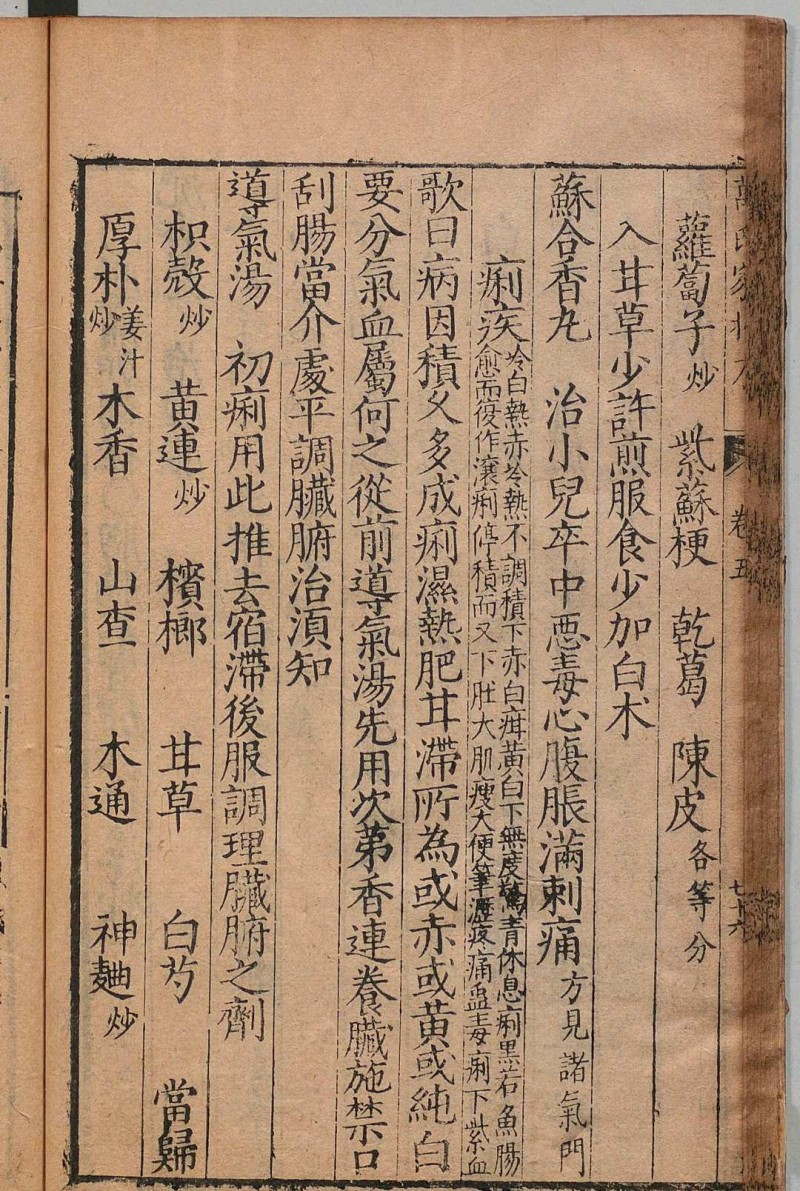 萬氏家抄方 卷五 七十六
蘿蔔子炒 紫蘇梗 乾葛 陳皮各等分
入甘草少許煎服食少加白朮
蘇合香丸 治小兒卒中惡毒心腹脹滿刺痛方見諸氣門
痢疾
冷白熱赤冷熱不調積下赤白疳黃白下無度驚青休息痢黑若魚腸
愈而復作瀼痢停積而又下肚大肌瘦大便窄澀疼痛蠱毒痢下紫血
歌曰病因積久多成痢濕熱肥甘滯所為或赤或黃或純白
要分氣血屬何之從前導氣湯先用次第香連養臟施禁口
刮腸當介處平調臟腑治須知
導氣湯 初痢用此推去宿滯後服調理臟腑之劑
枳殼炒 黃連炒 檳榔 甘草 白芍 當歸
厚朴姜汁炒 木香 山查 木通 神麯炒